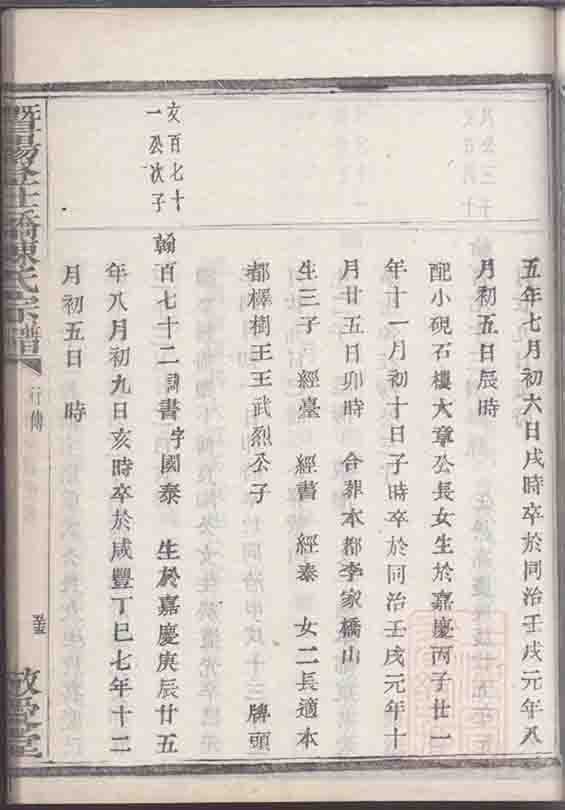 五年七月初六日戌時卒於同治壬戌元年八
月初五日辰時
配小硯石樓大章公長女生於嘉慶丙子廿一
年十一月初十日子時卒於同治壬戌元年十
月廿五日卯時 合葬本都李家橋山
生三子 經臺 經書 經泰 女二長適本
都檡樹王王武烈公子 牌頭
亥百七十
一公次子
翰百七十二 詞書字國泰 生於嘉慶庚辰廿五
年八月初九日亥時卒於咸豐丁巳七年十二
月初五日 時
暨陽 橋陳氏宗譜
行傳
敬愛堂